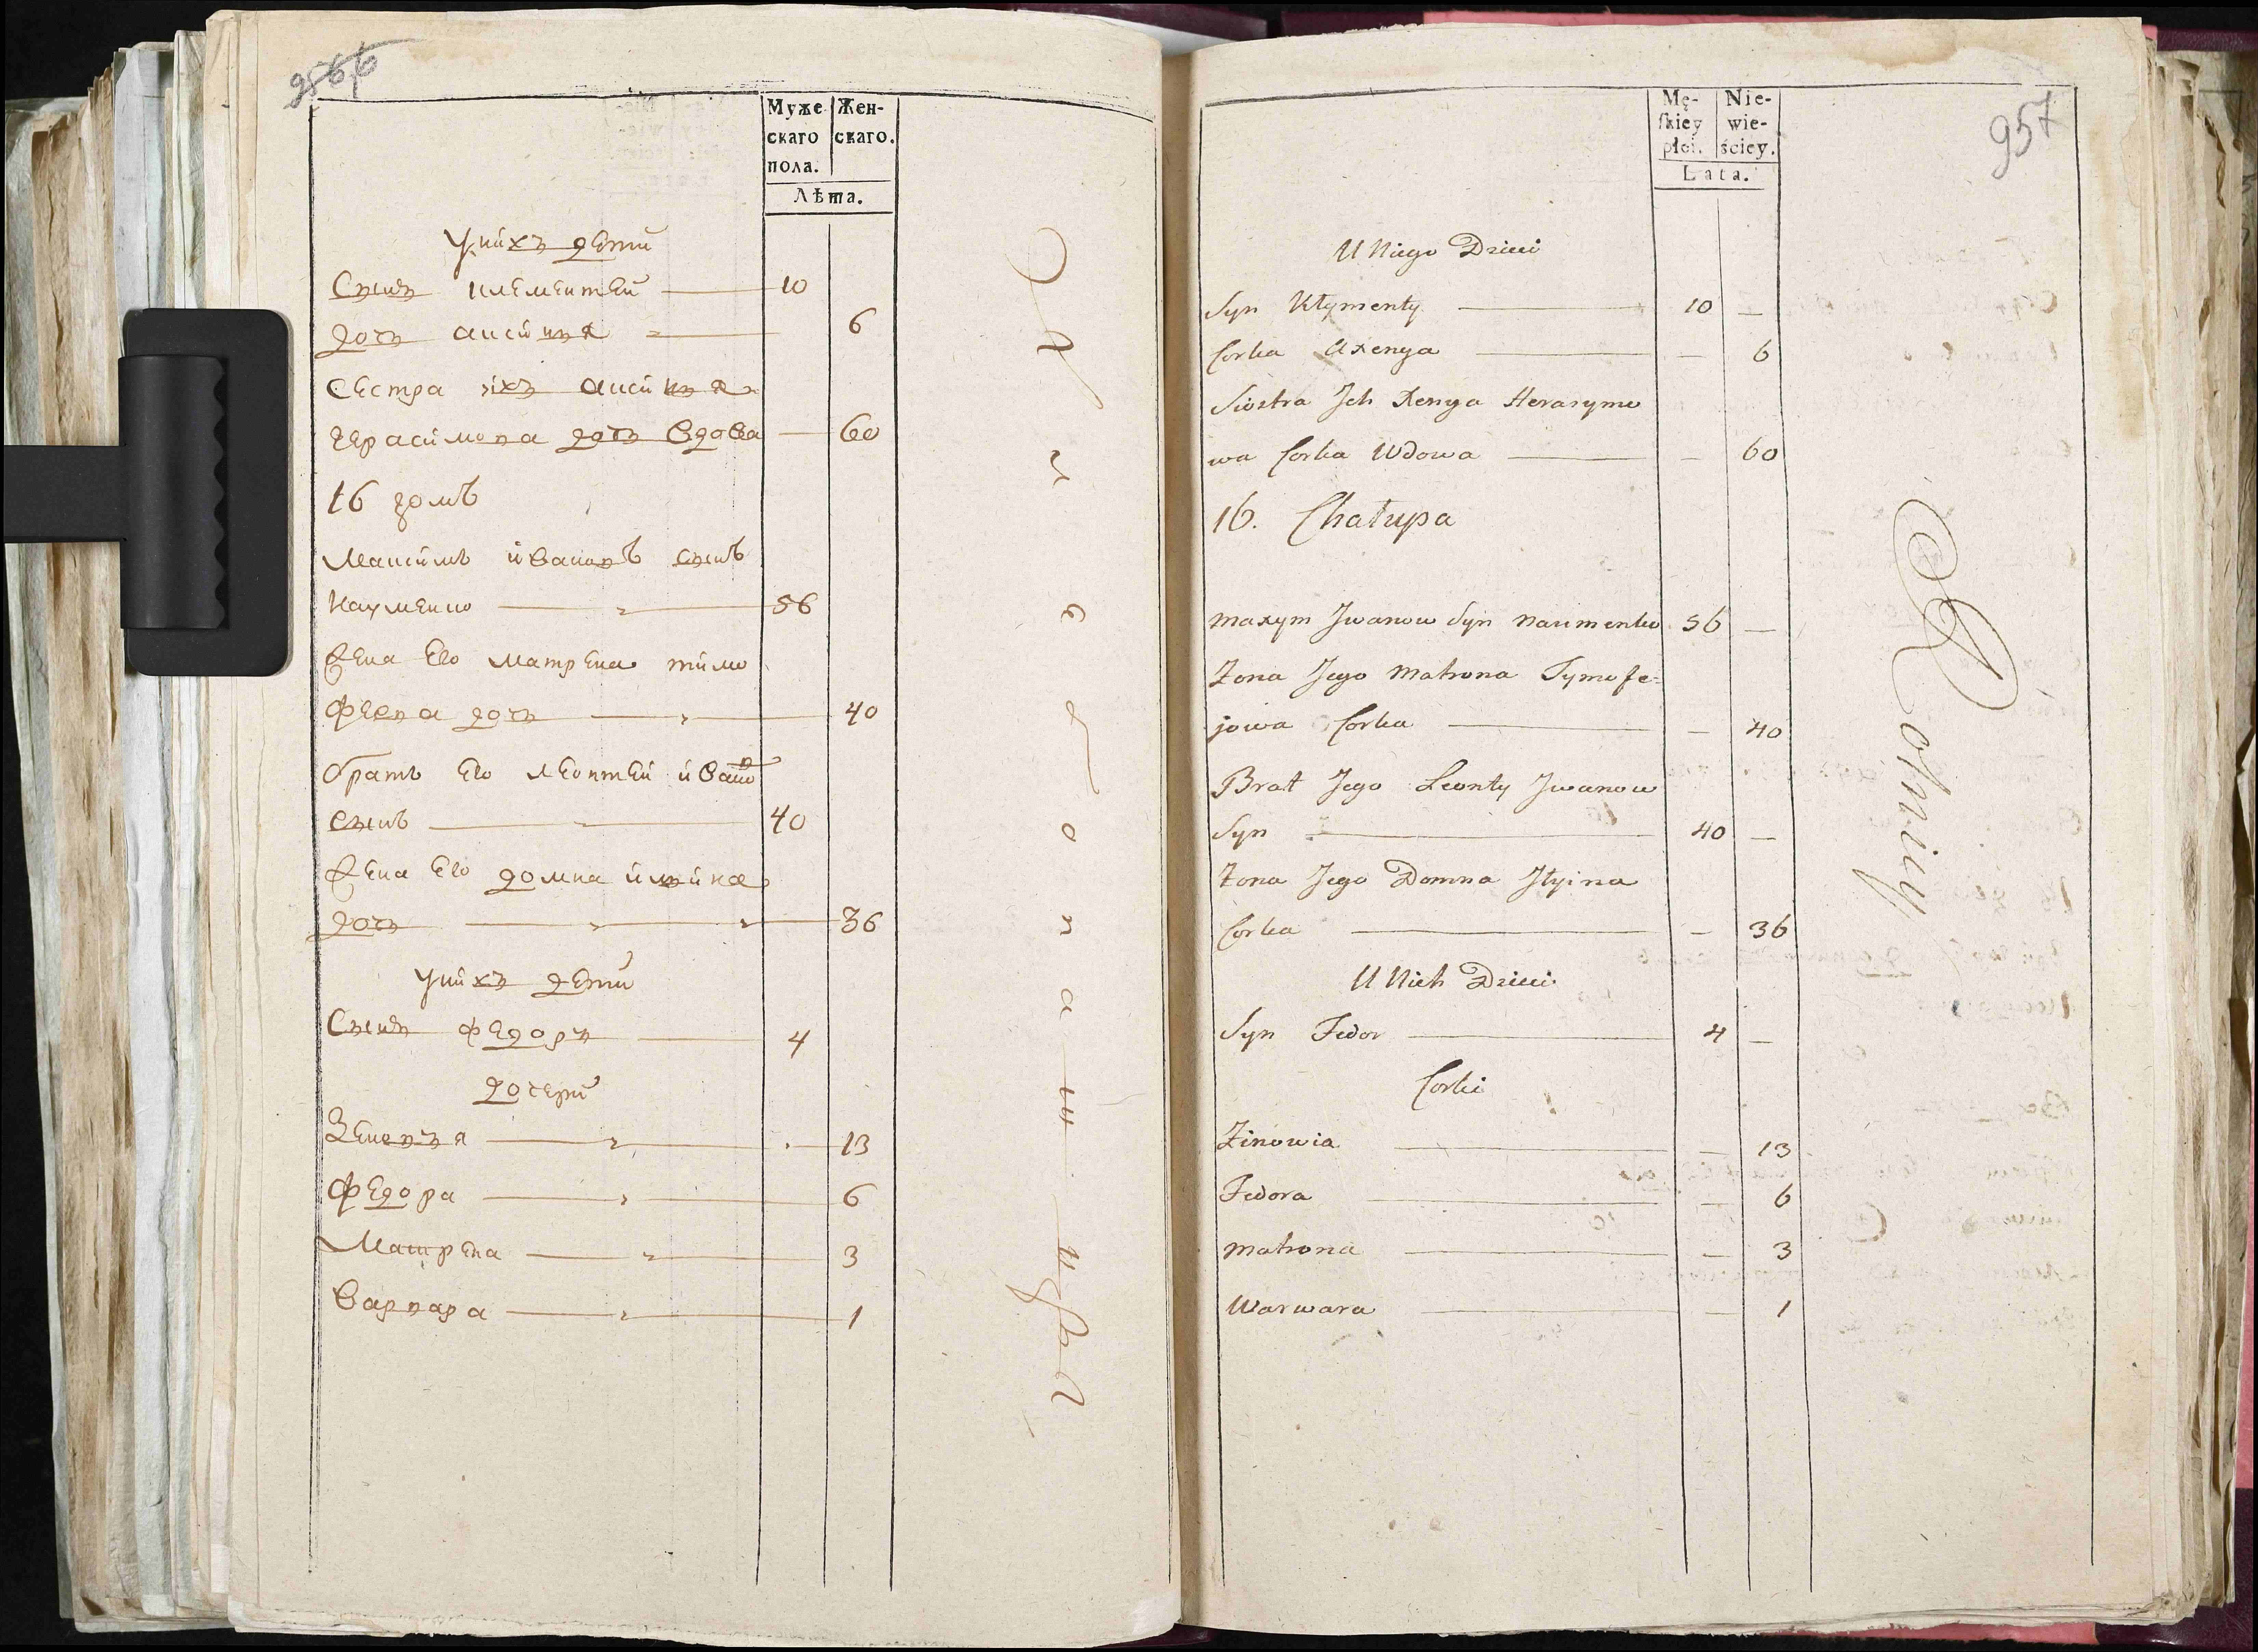 956
Муже
скаго
пола.
Жен-
скаго.
Лѣта.
Унихъ дети
Сынъ клементей 10
дочъ аксинъя 6
сестра ихъ аксинъя
герасимова дочъ вдова 60
16 домъ
Максимъ ивановъ сынъ
Науменко 56
жена Его матрена тимо
феева дочъ 40
братъ Его леонтей ивано
в
сынъ 40
жена Его домна ильина
дочъ 36
Унихъ дети
Сынъ федоръ 4
дочери
Зеновъя 13
федора 6
Матрена 3
Варвара 1
957
Mę-
ſkiey
płci.
Nie-
wie-
ściey.
Lata.
U Niego Dzieci
Syn Kłymenty 10 —
Corka Axenya — 6
Siostra Jch Xenya Herasymo
wa Corka Wdowa — 60
16. Chałupa
Maxym Jwanow Syn Naumenko 56 —
Zona Jego Matrona Tymofe=
jowa Corka — 40
Brat Jego Leonty Jwanow
Syn 40 —
Zona Jego Domna Jłyina
Corka — 36
U Nich Dzieci
Syn Fedor 4 —
Corki
Zinowia — 13
Fedora — 6
Matrona — 3
Warwara — 1
Rotniy